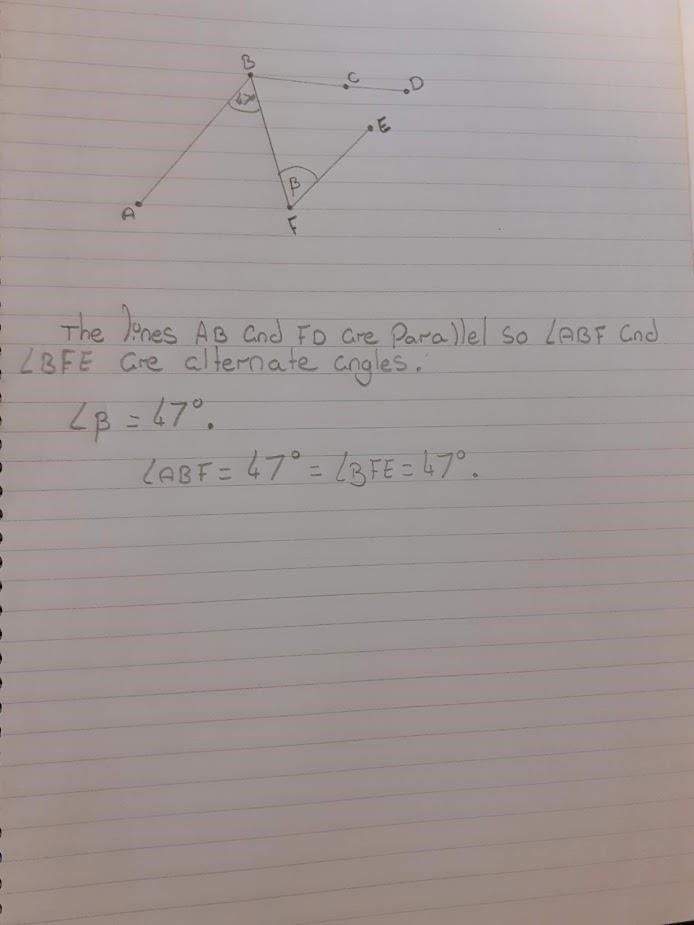 B
C
D
47°
E
β
A
F
The lines AB and FD are Parallel so ∠ABF and
∠BFE are alternate angles.
∠β = 47°.
∠ABF = 47° = ∠BFE = 47°.